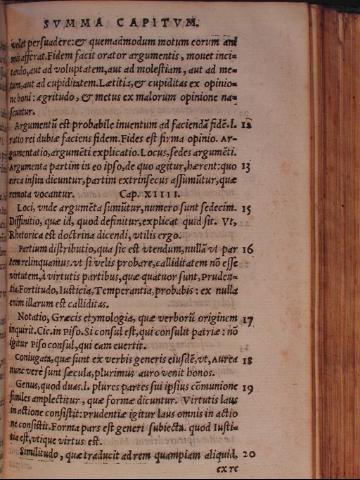 SVMMA CAPITVM.
volet persuadere: & quemadmodum motum eorum ani
mis afferat. Fidem facit orator argumentis, mouet inci-
tando, aut ad voluptatem, aut ad molestiam, aut ad me-
tum, aut ad cupiditatem. Lætitia, & cupiditas ex opinio-
ne boni: ægritudo, & metus ex malorum opinione na-
scuntur.
Argumentũ est probabile inuentum ad faciendã fidẽ. l. 12
ratio rei dubiæ faciens fidem. Fides est firma opinio. Ar-
gumentatio, argumẽti explicatio. Locus, sedes argumẽti.
Argumenta partim in eo ipso, de quo agitur, hærent: quo 13
circa insita dicuntur, partim extrinsecus assumũtur, quæ
remota vocantur. Cap. XIIII.
Loci, vnde argumẽta sumũtur, numero sunt sedecim. 15
Diffinitio, quæ id, quod definitur, explicat quid sit. Vt,
Rhetorica est doctrina dicendi, vtilis ergo.
Partium distributio, qua sic est vtendum, nullã vt par 16
tem relinquamus. vt si velis probare, calliditatem nõ esse
virtutem, à virtutis partibus, quæ quatuor sunt, Pruden-
tia, Fortitudo, Iusticia, Temperantia, probabis: ex nulla
enim illarum est calliditas.
Notatio, Græcis etymologia, quæ verborũ originem 17
inquirit. Cic. in Piso. Si consul est, qui consulit patriæ: nõ
igitur Piso consul, qui eam euertit.
Coniugata, quæ sunt ex verbis generis eiusdẽ, vt, Aurea 18
nunc vere sunt sæcula, plurimus auro venit honos.
Genus, quod duas. l. plures partes sui ipsius cõmunione 19
similes amplectitur, quæ formæ dicuntur. Virtutis laus
in actione consistit: Prudentiæ igitur laus omnis in actio
ne consistit. Forma pars est generi subiecta. quod Iusti-
tia est, vtique virtus est.
Similitudo, quæ traducit ad rem quampiam aliquid, 20
ex re